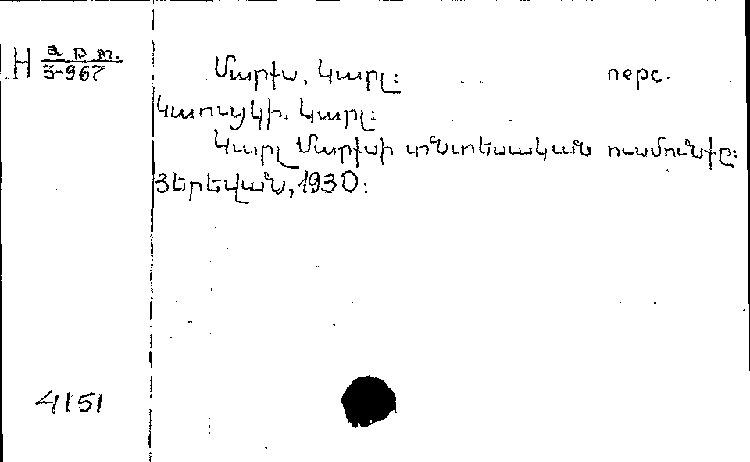 Մարքս, Կարլ։ перс.
Н 3-967
Կաուցկի. Կարլ։
Կարլ Մարքսի տնտեսական ուսմունքը։
Յերեվան, 1930։
4151